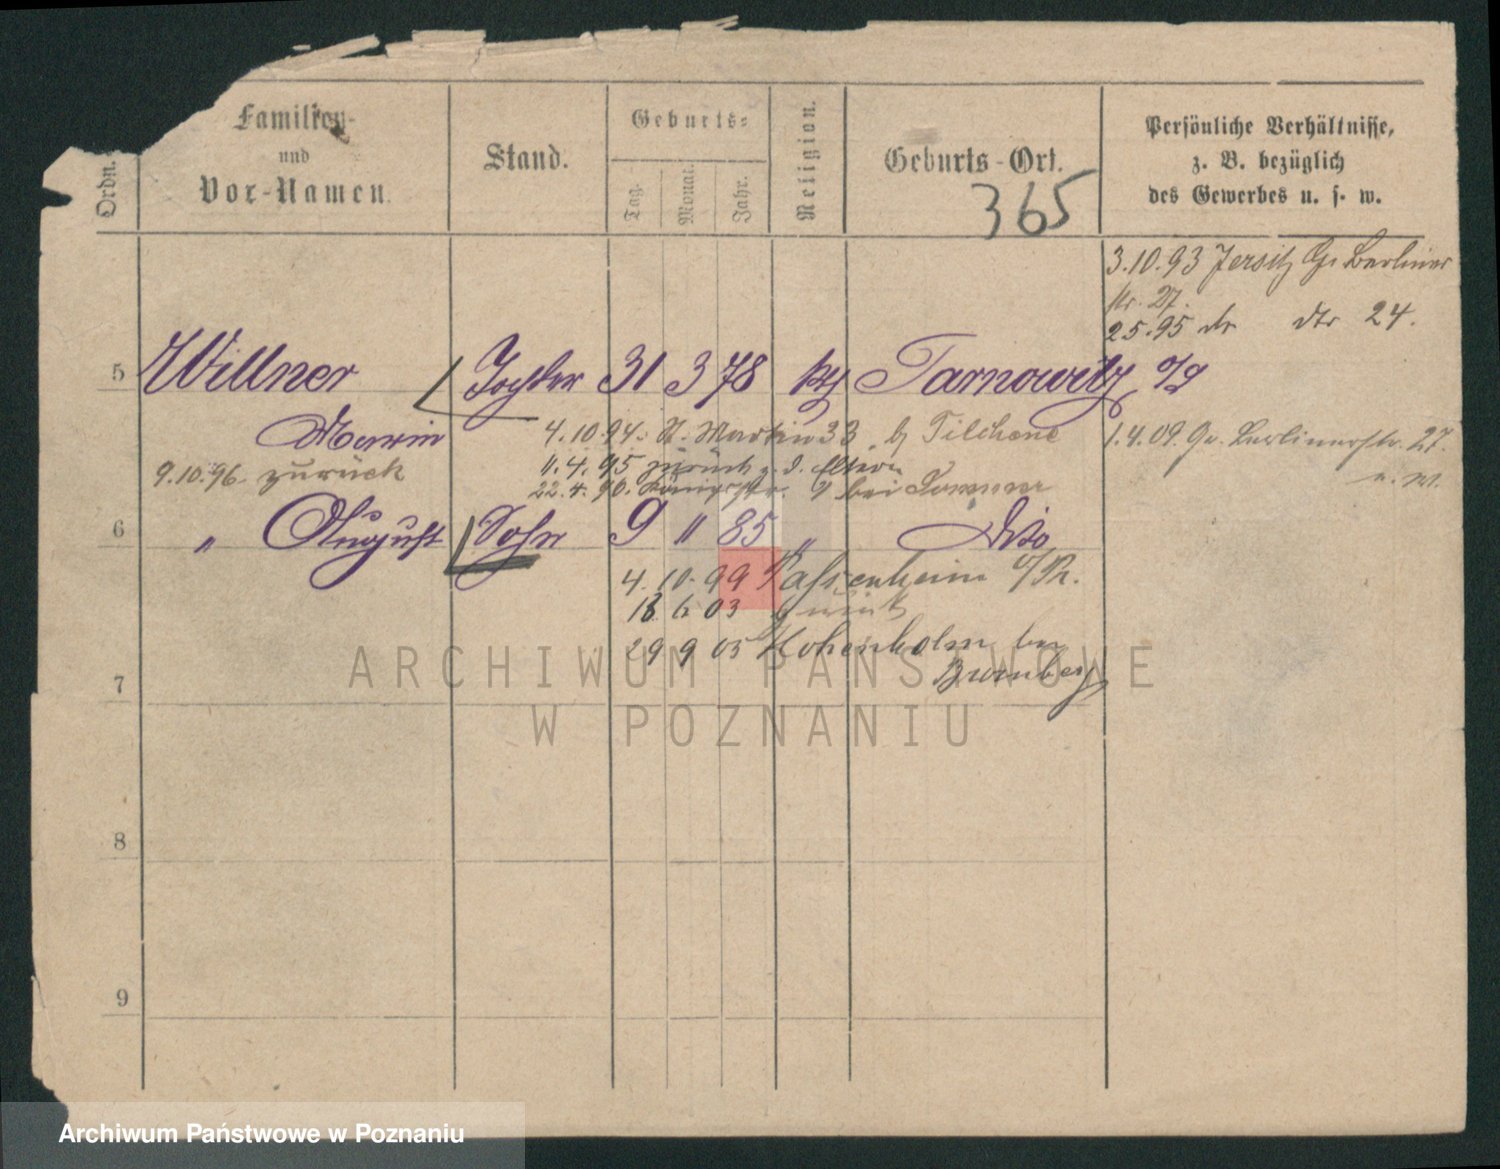 Ordn.
Familien-
und
Vor-Namen.
Stand.
Geburts-
Tag.
Monat.
Jahr.
Religion.
Geburts-Ort.
365
Persönliche Verhältnisse,
z. B. bezüglich
des Gewerbes u. s. w.
3.10.93 Jersitz Gr. Berliner
str. 27.
2.5.95 do dto 24.
5 Willner Tochter 31 3 78 kth Tarnowitz O/S
Marie 4.10.94. St. Martin 33
1.4.09. Gr. Berlinerstr. 27.
9.10.96. zurück 11.4.95 zurück z. d. Eltern
22.4.96. Königsstr. 9 bei
6 " August Sohn 9 11 85 " dto
4.10.99 Passenheim O/Pr.
18 6 03 zurück
29 9 05 Hohenholm bei
Bromberg
7
8
9
ARCHIWUM PAŃSTWOWE
W POZNANIU
Archiwum Państwowe w Poznaniu